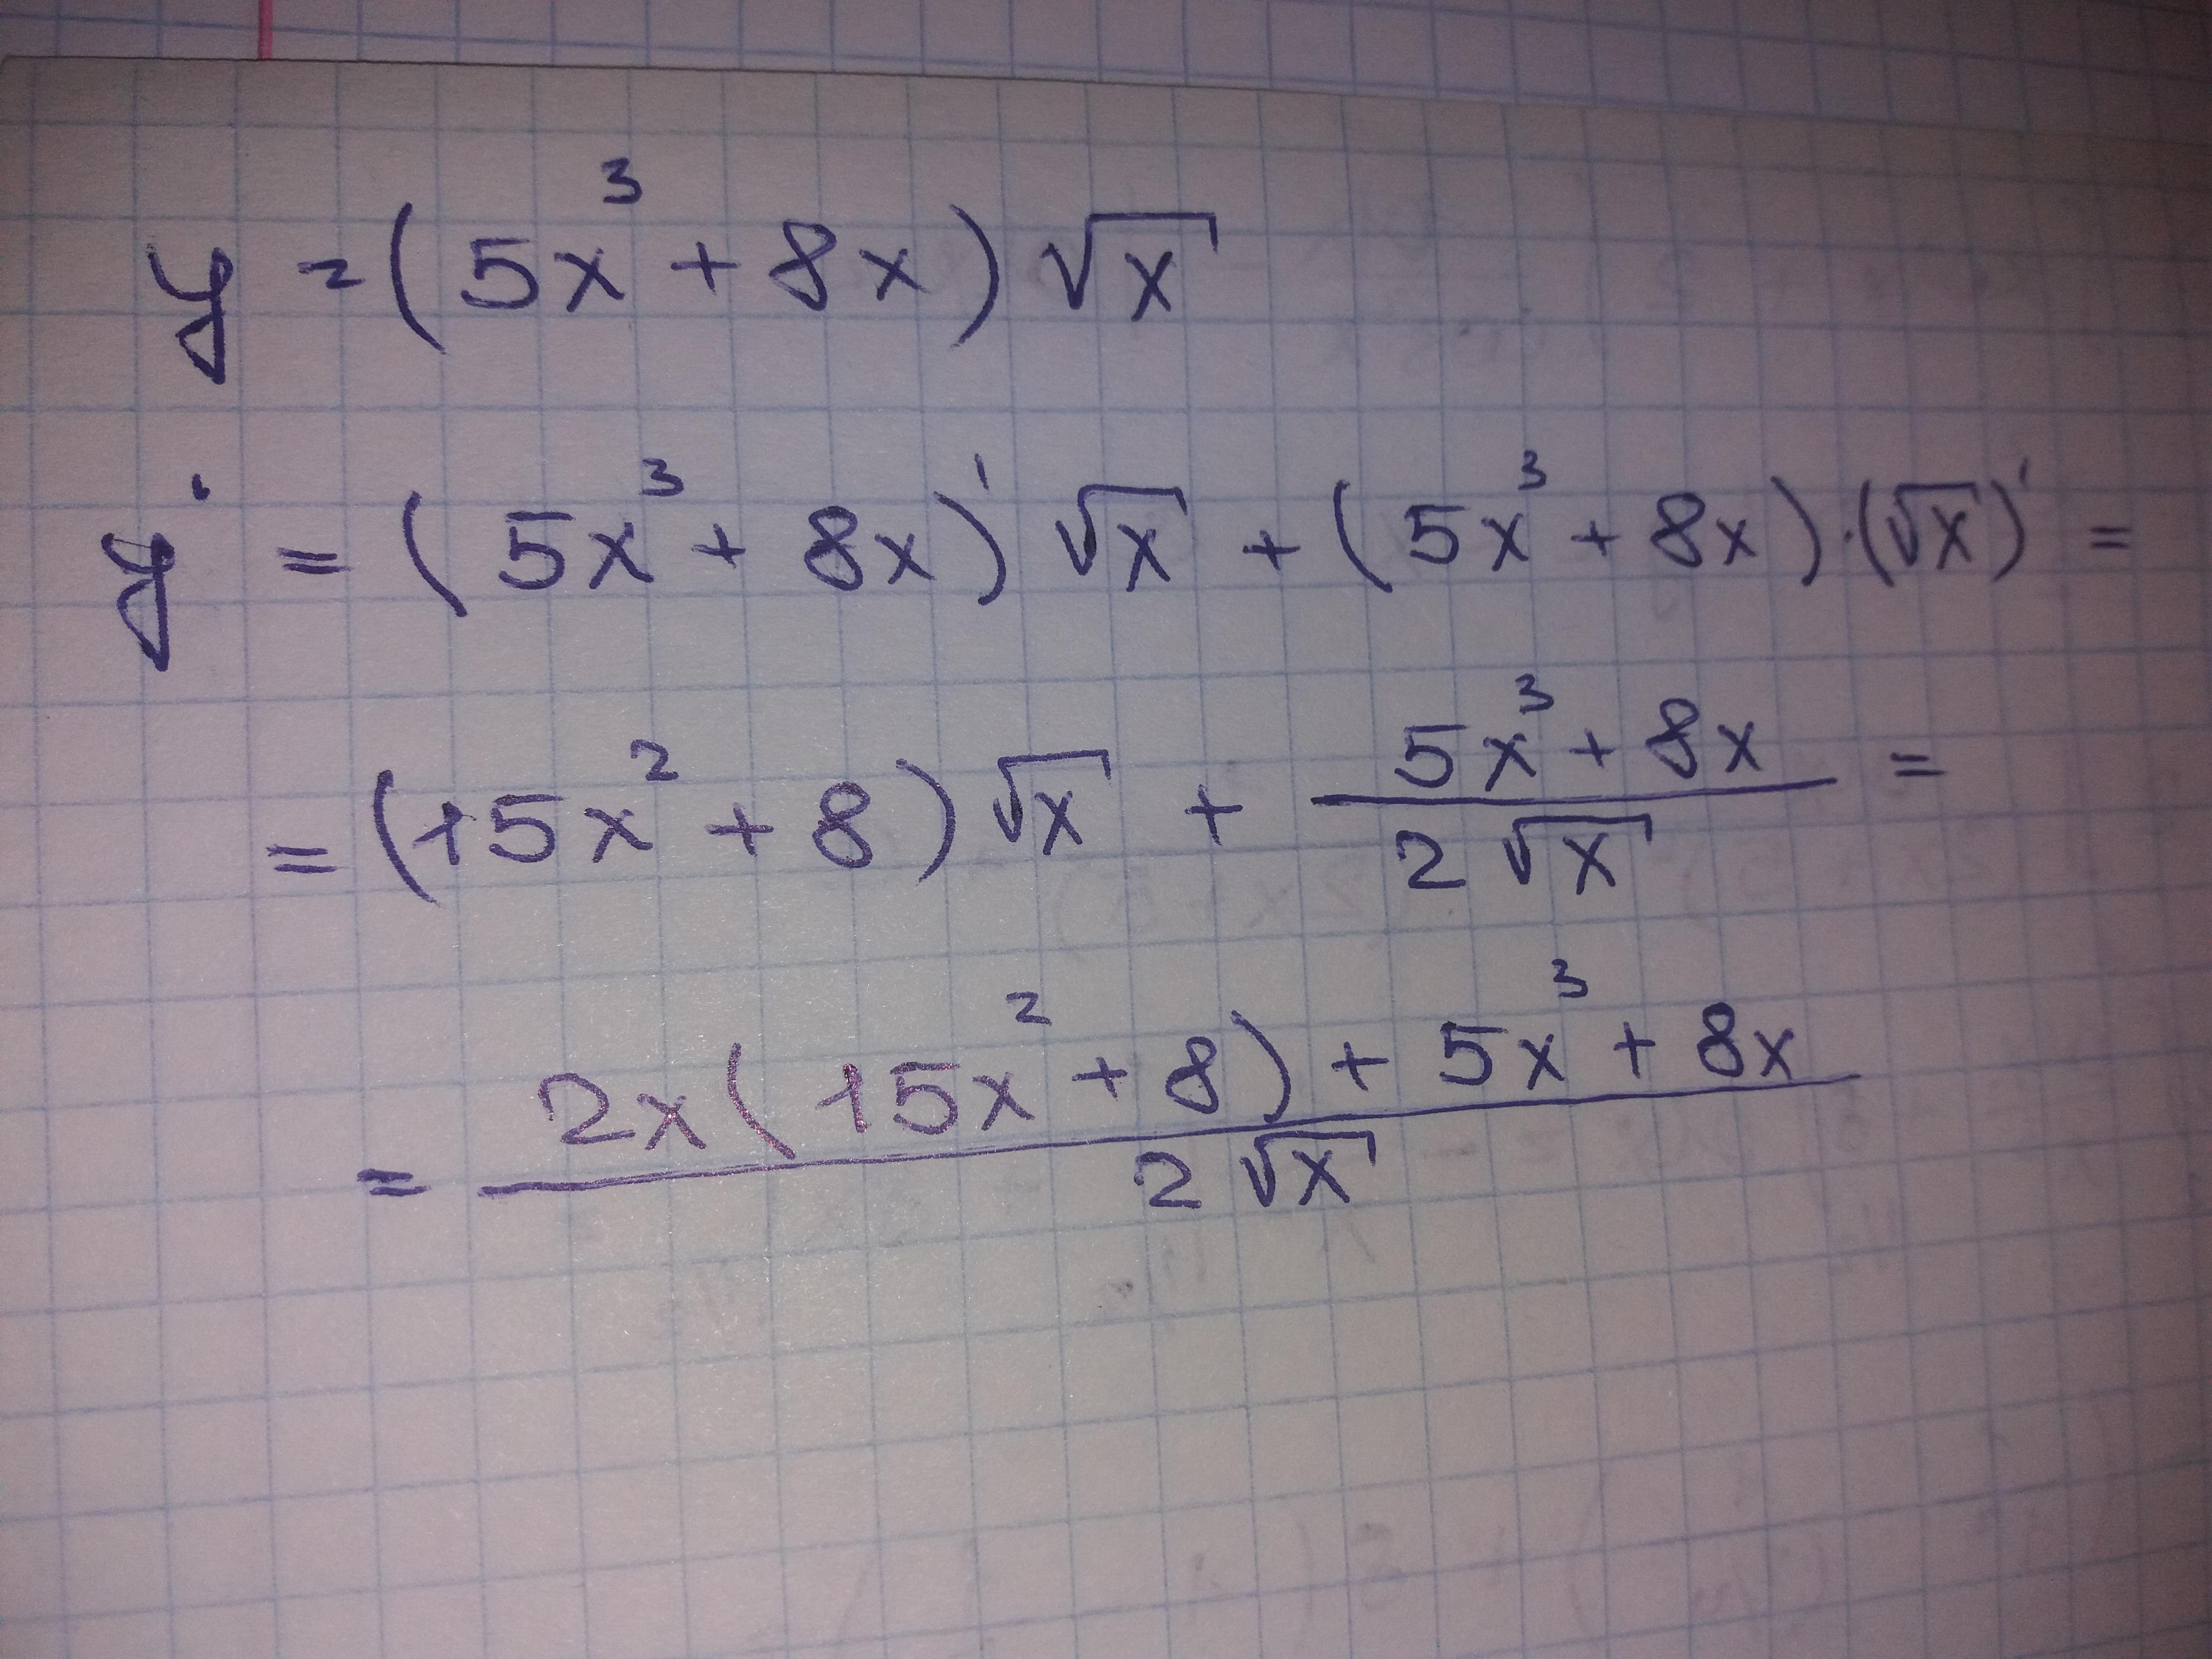 y = (5x³ + 8x)√x
y' = (5x³ + 8x)'√x + (5x³ + 8x)·(√x)' =
= (15x² + 8)√x + (5x³ + 8x)/(2√x) =
= (2x(15x² + 8) + 5x³ + 8x)/(2√x)